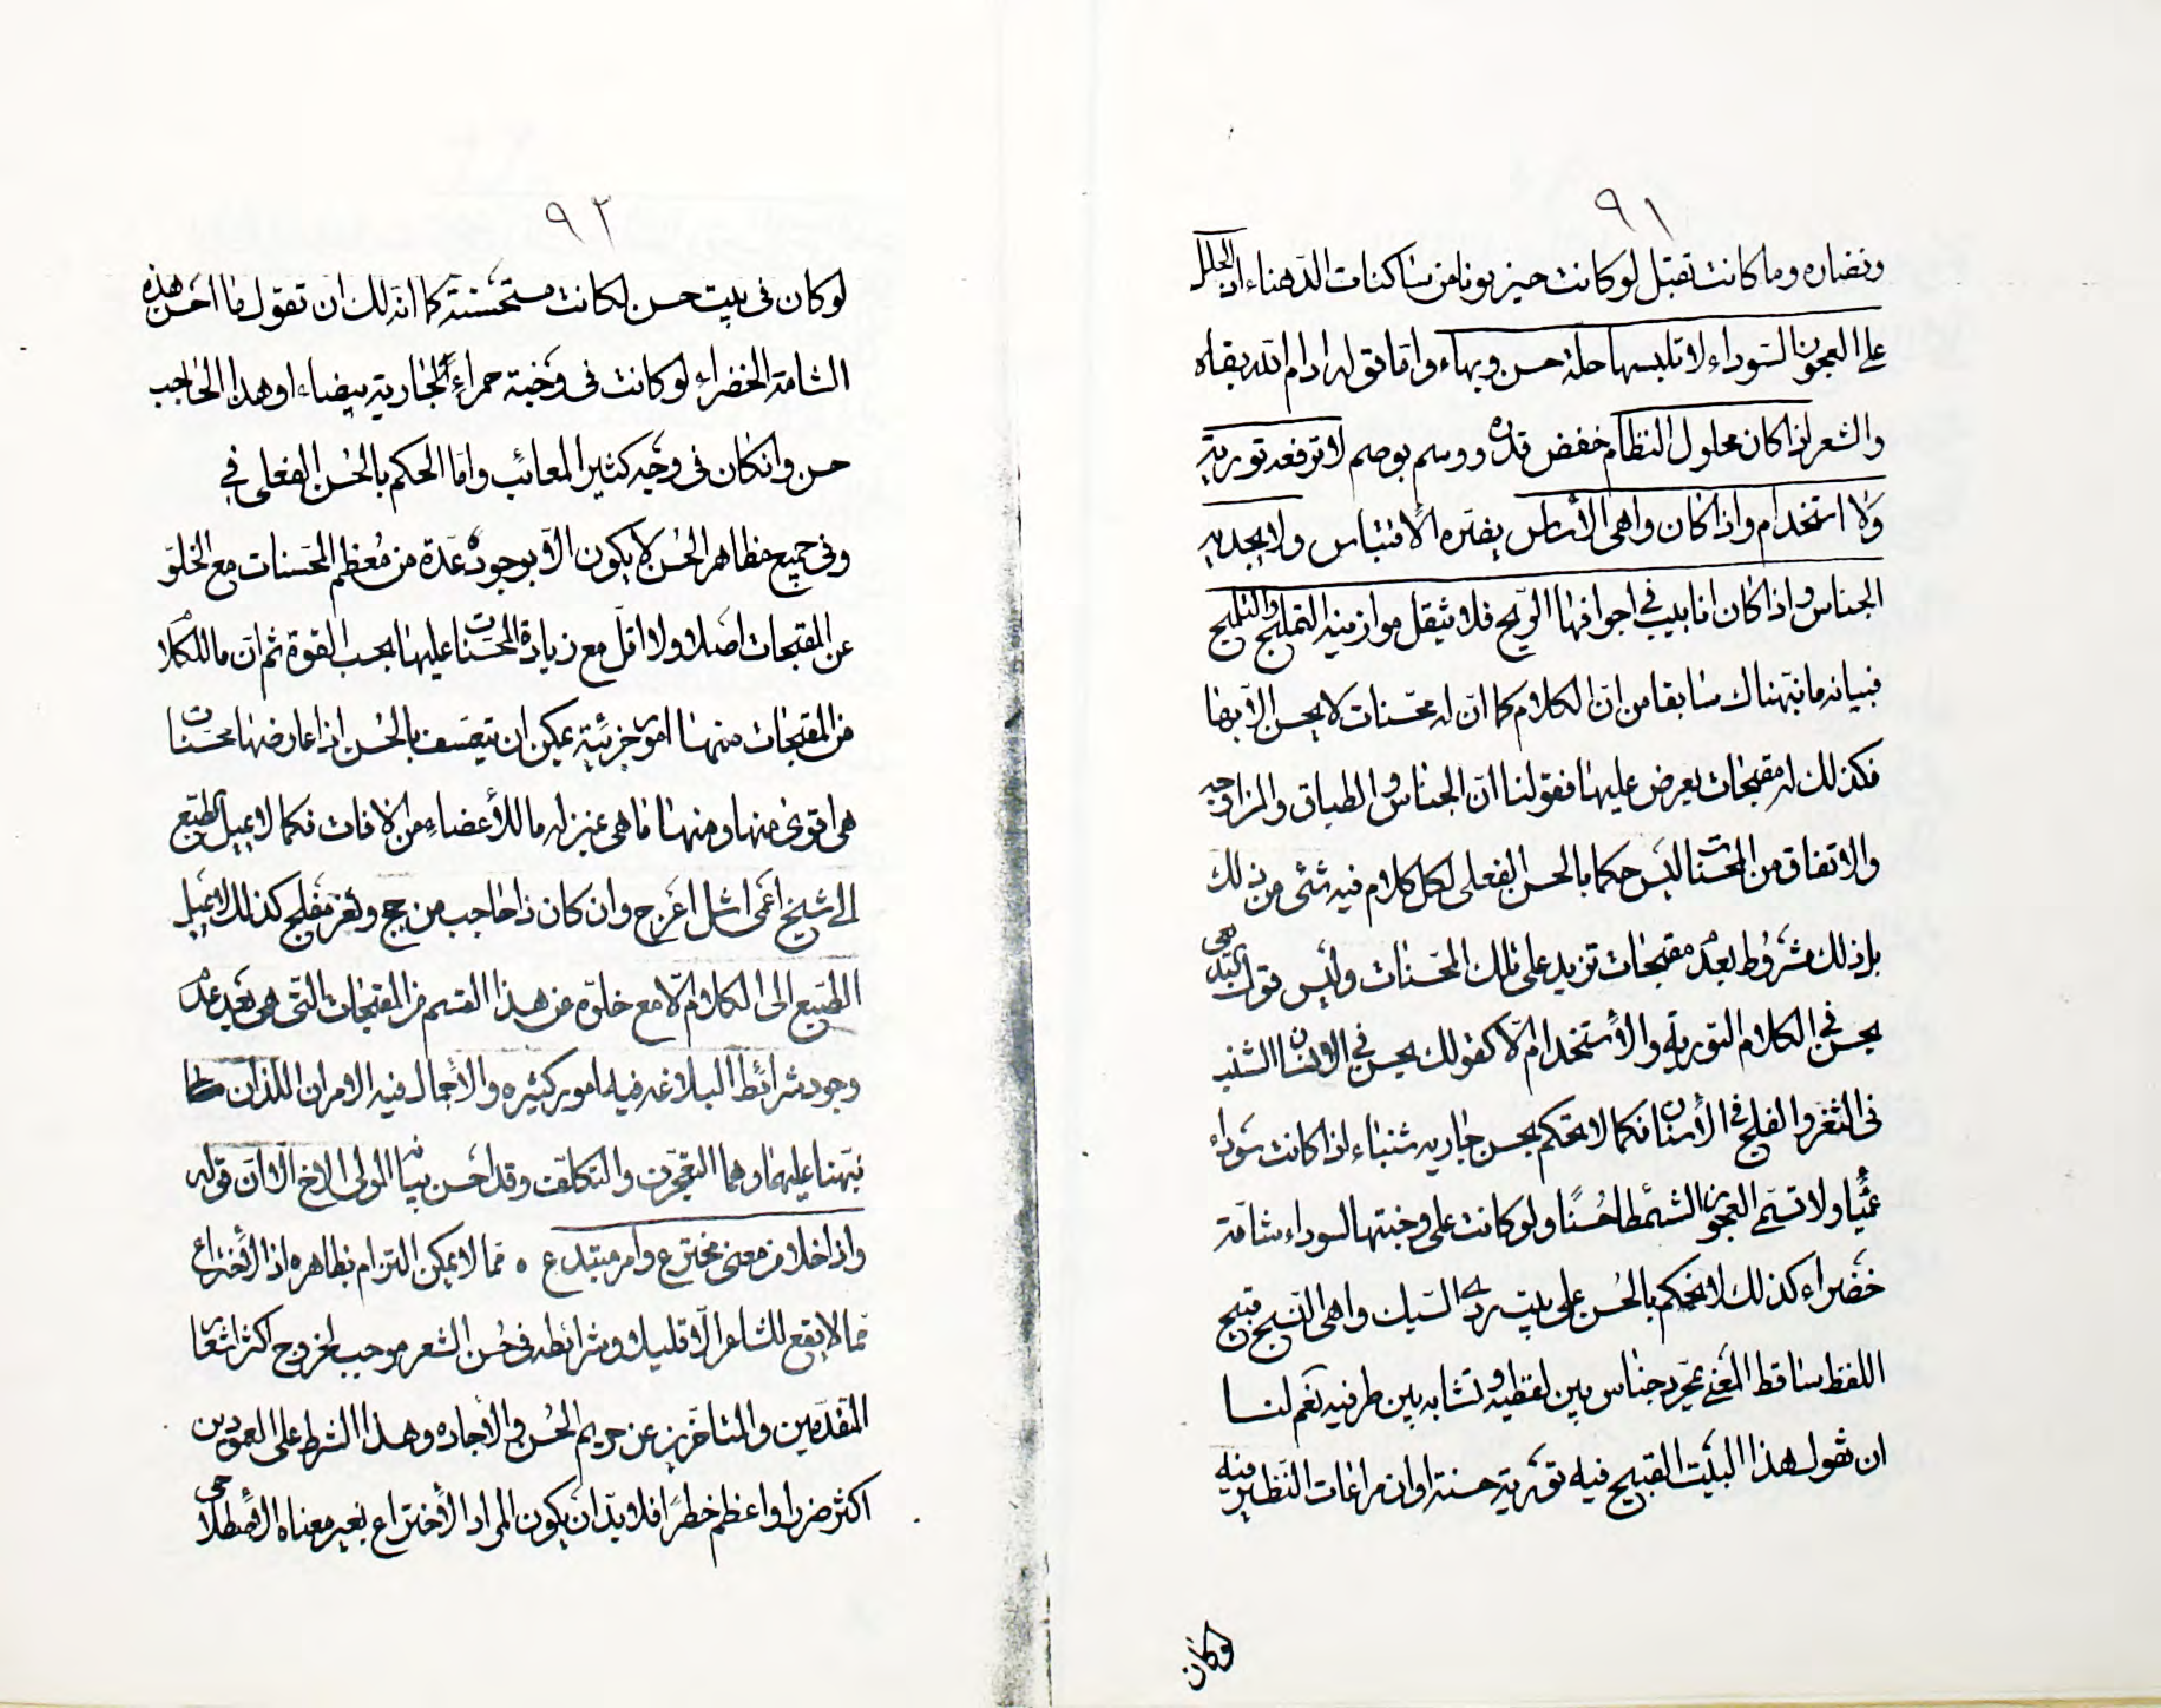 ٩١
ونضاره وما كانت تقبل لو كانت حيزبونا من ساكنات الدهناء اذ الحلل
على العجوز السوداء لا تلبسها حلة حسن وبهاء واما قوله ادام الله بقاه
والشعر اذا كان محلول النظام خفض قدره ووسم بوصم لا ترفعه تورية
ولا استخدام واذا كان واهى الأساس يضره الاقتباس ولا يجديه
الجناس واذا كان انابيب في اجوافها الريح فلا يثقل موازينه التمليح والتلميح
فبيانه ما نبهناك سابقا من ان الكلام كما ان له محسنات لا يحسن الا بها
فكذلك له مقبحات يعرض عليها فقولنا ان الجناس والطباق والمزاوجه
والاتفاق من المحسنات ليس حكما بالحسن الفعلى لكل كلام فيه شئ من ذلك
بل ذلك مشروط بعدم مقبحات تزيد على تلك المحسنات وليس قول البديعى
يحسن في الكلام التورية والأستخدام الا كقولك يحسن في الانسان الشنب
فى الثغر والفلج في الأسنان فكما لا يحكم بحسن جارية شنباء اذا كانت سوداء
عمياء ولا تسمى العجوز الشمطاء حسنا ولو كانت على وجنتها السوداء شامة
خضراء كذلك لا نحكم بالحسن على بيت ردى السبك واهى النسج قبيح
اللفظ ساقط المعنى بمجرد جناس بين لفظيه وتشابه بين طرفيه نعم لنا
ان نقول هذا البيت القبيح فيه تورية حسنة او ان مراعات النظير فيه
لوكان
٩٢
لو كان فى بيت حسن لكانت مستحسنة كما انه لك ان تقول ما احسن هذه
الشامة الخضراء لو كانت فى وجنة حمراء لجارية بيضاء او هذا الحاجب
حسن وانكان فى وجه كثير المعائب واما الحكم بالحسن الفعلى في
وفى جميع مظاهر الحسن لا يكون الا بوجود عدة من معظم المحسنات مع الخلو
عن المقبحات اصلا ولا اقل مع زيادة المحسنات عليها بحسب القوة ثم ان ما للكلام
من المقبحات منها امور جزئية يمكن ان يتصف بالحسن اذا عارضها محسنات
هى اقوى منها ومنها ما هى بمنزلة ما للأعضاء من الافات فكما لا يميل الطبع
الى شيخ اعمى اشل اعرج وان كان ذا حاجب مزجج وثغر مفلج كذلك لا يميل
الطبع الى الكلام الا مع خلوه عن هذا القسم من المقبحات التى هى بعيد عدم
وجود شرائط البلاغه فيه امور كثيره والأجمال فيه الامران اللذان
نبهنا عليهما وهما التعجرف والتكلف وقد احسن بيانه المولى الاخ الا ان قوله
واذا خلا من معنى مخترع وامر مبتدع ه مما لا يمكن التزام بظاهره اذ الأختراع
مما لا يقع للشاعر الا قليلا وشرائطه فى حسن الشعر موجب لخروج اكثر اشعار
المتقدمين والمتاخرين عن حريم الحسن والأجاده وهذا الشرط على العمودين
اكثر ضررا واعظم خطرا فلا بد ان يكون المراد الأختراع بغير معناه الأصطلاحى